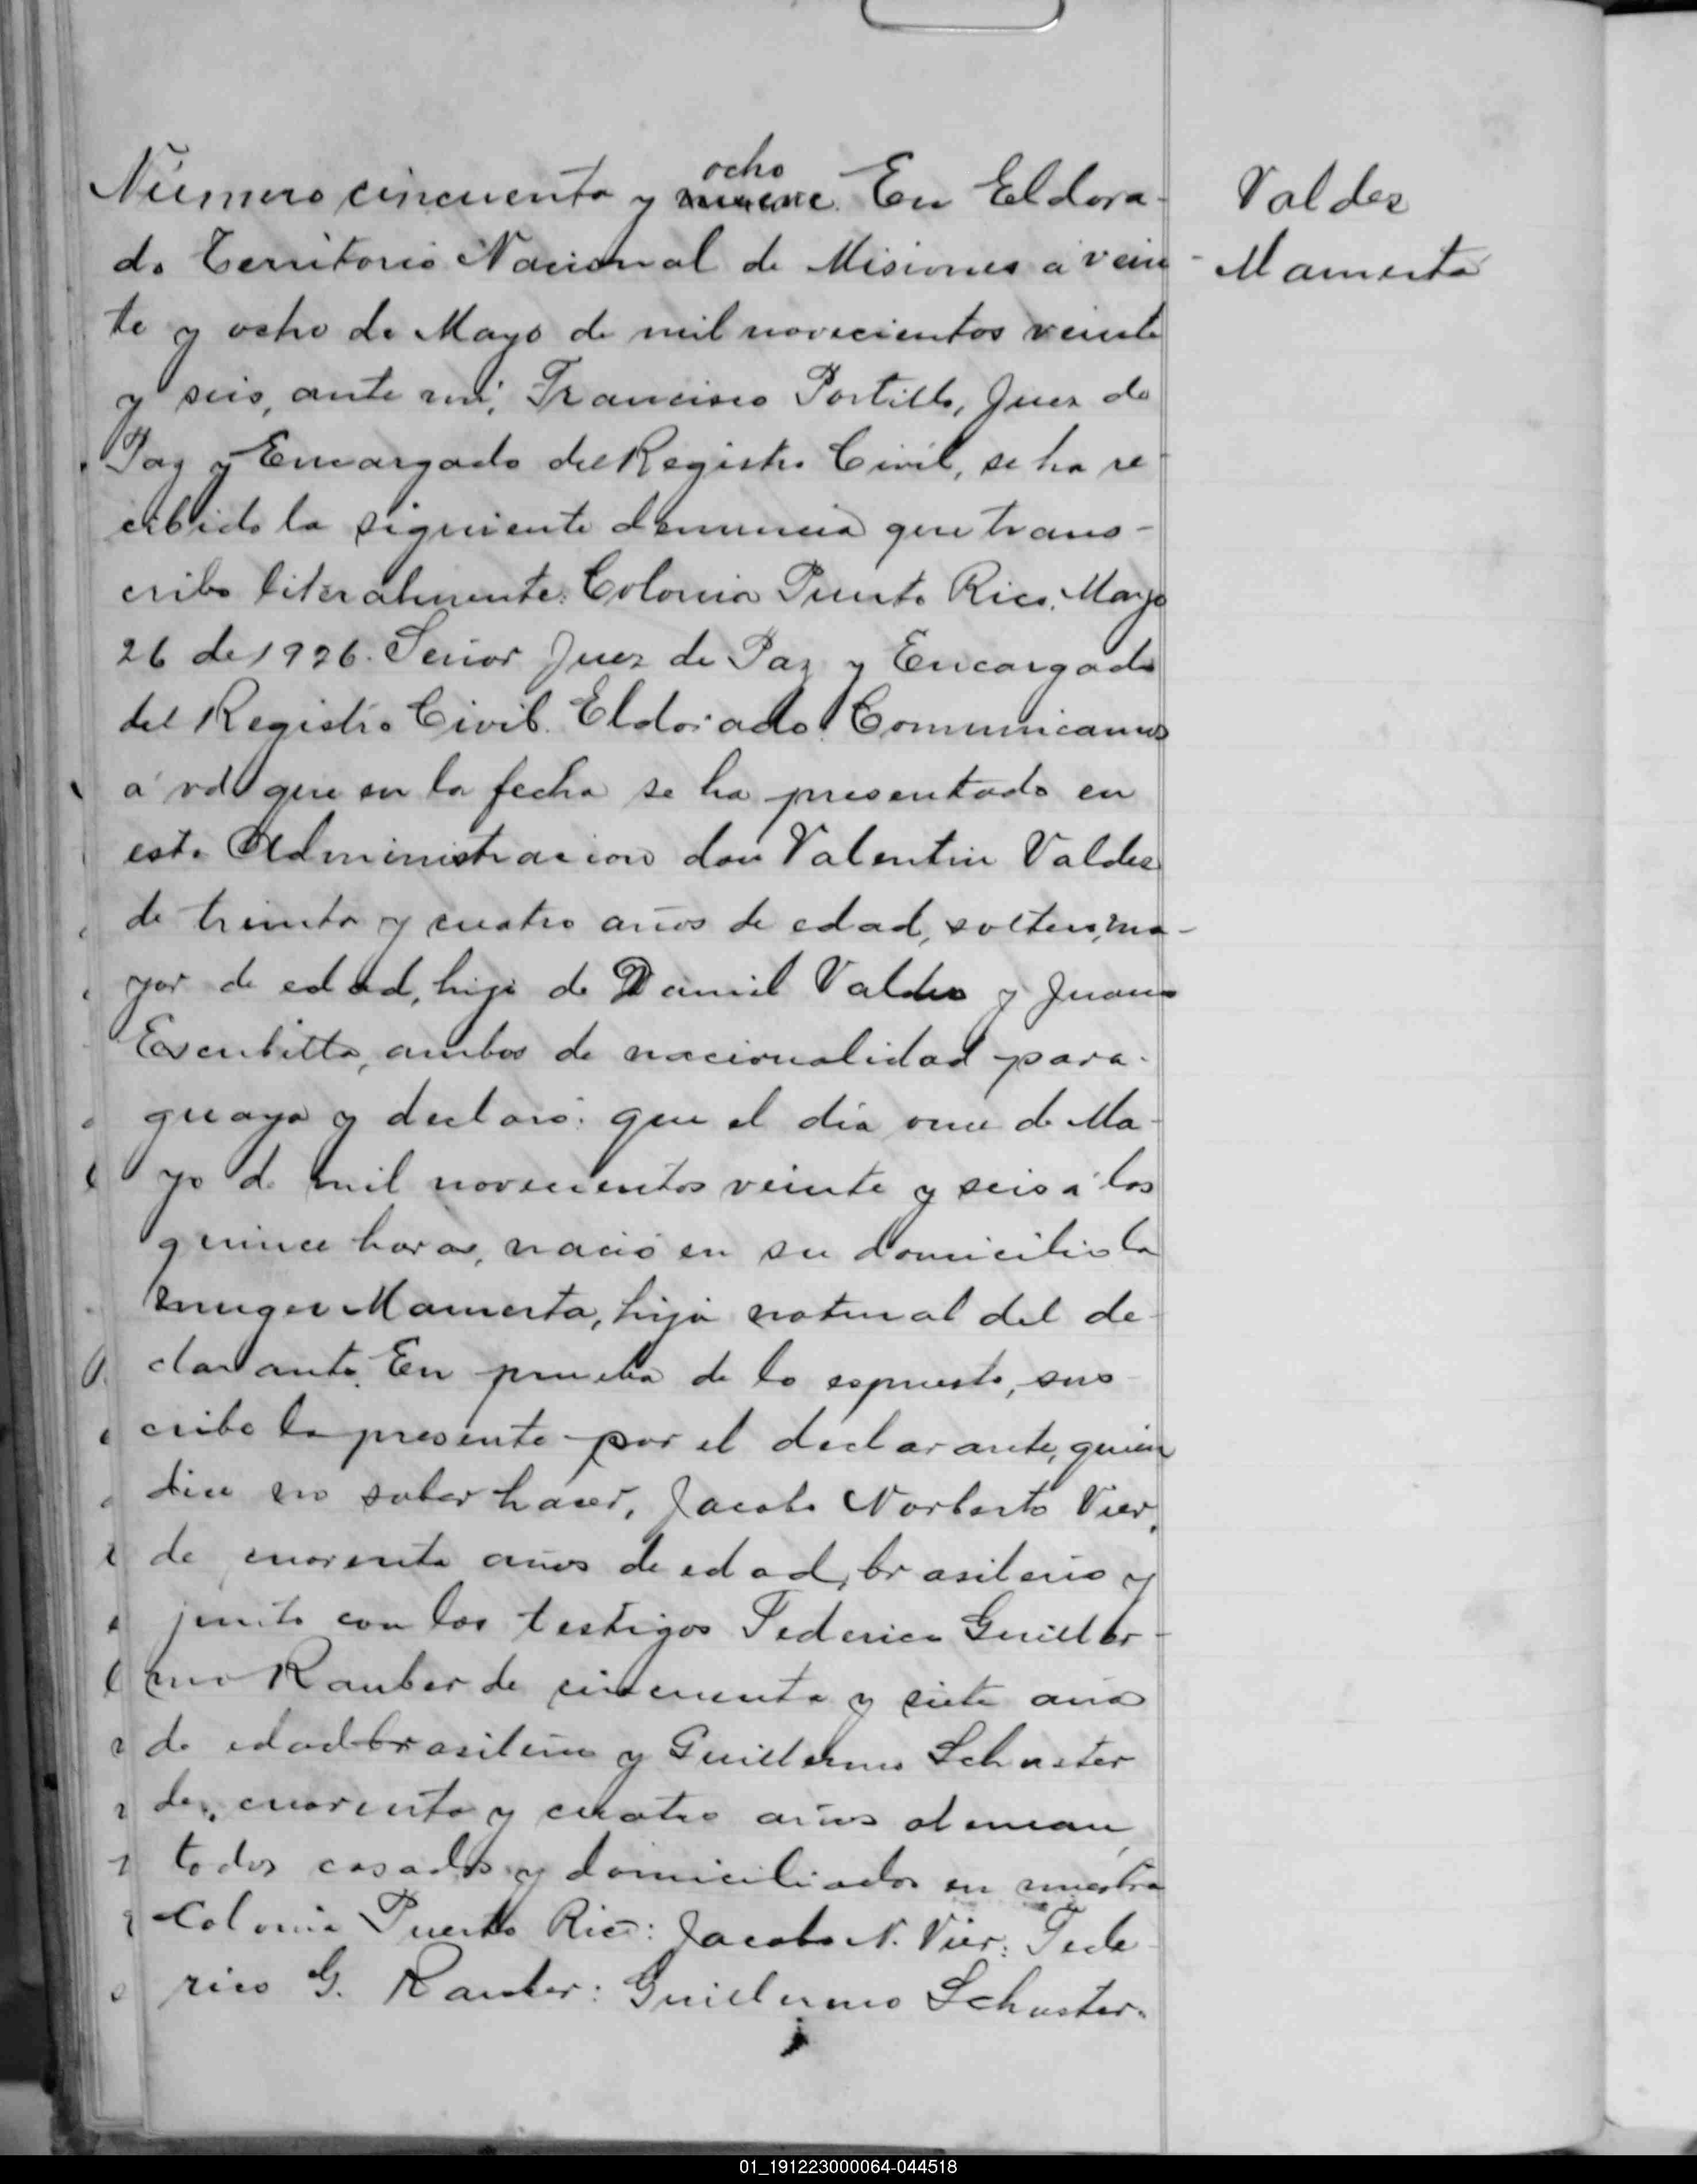 Número cincuenta y nueve ocho. En Eldora-
do Territorio Nacional de Misiones a vein-
te y ocho de Mayo de mil novecientos veinte
y seis, ante mí, Francisco Portillo, Juez de
Paz y Encargado del Registro Civil, se ha re-
cibido la siguiente denuncia que trans-
cribo literalmente: Colonia Puerto Rico, Mayo
26 de 1926. Señor Juez de Paz y Encargado
del Registro Civil. Eldorado. Comunicamos
a vd que en la fecha se ha presentado en
esta Administracion don Valentin Valdez
de treinta y cuatro años de edad, soltero, ma-
yor de edad, hijo de Daniel Valdez y Juana
ambos de nacionalidad para-
guaya y declaró: que el día once de Ma-
yo de mil novecientos veinte y seis a las
quince horas, nació en su domicilio la
muger Mamerta, hija natural del de-
clarante. En prueba de lo espuesto, sus-
cribe la presente por el declarante, quien
dice no saber hacer, Jacobo Norberto Vier,
de cuarenta años de edad, brasileño y
junto con los testigos Federico Guiller-
mo Rauber de cincuenta y siete años
de edad brasileño y Guillermo Schuster
de cuarenta y cuatro años aleman,
todos casados y domiciliados en nuestra
Colonia Puerto Rico: Jacobo N. Vier: Fede-
rico G. Rauber: Guillermo Schuster.
Valdez
Mamerta
01_191223000064-044518